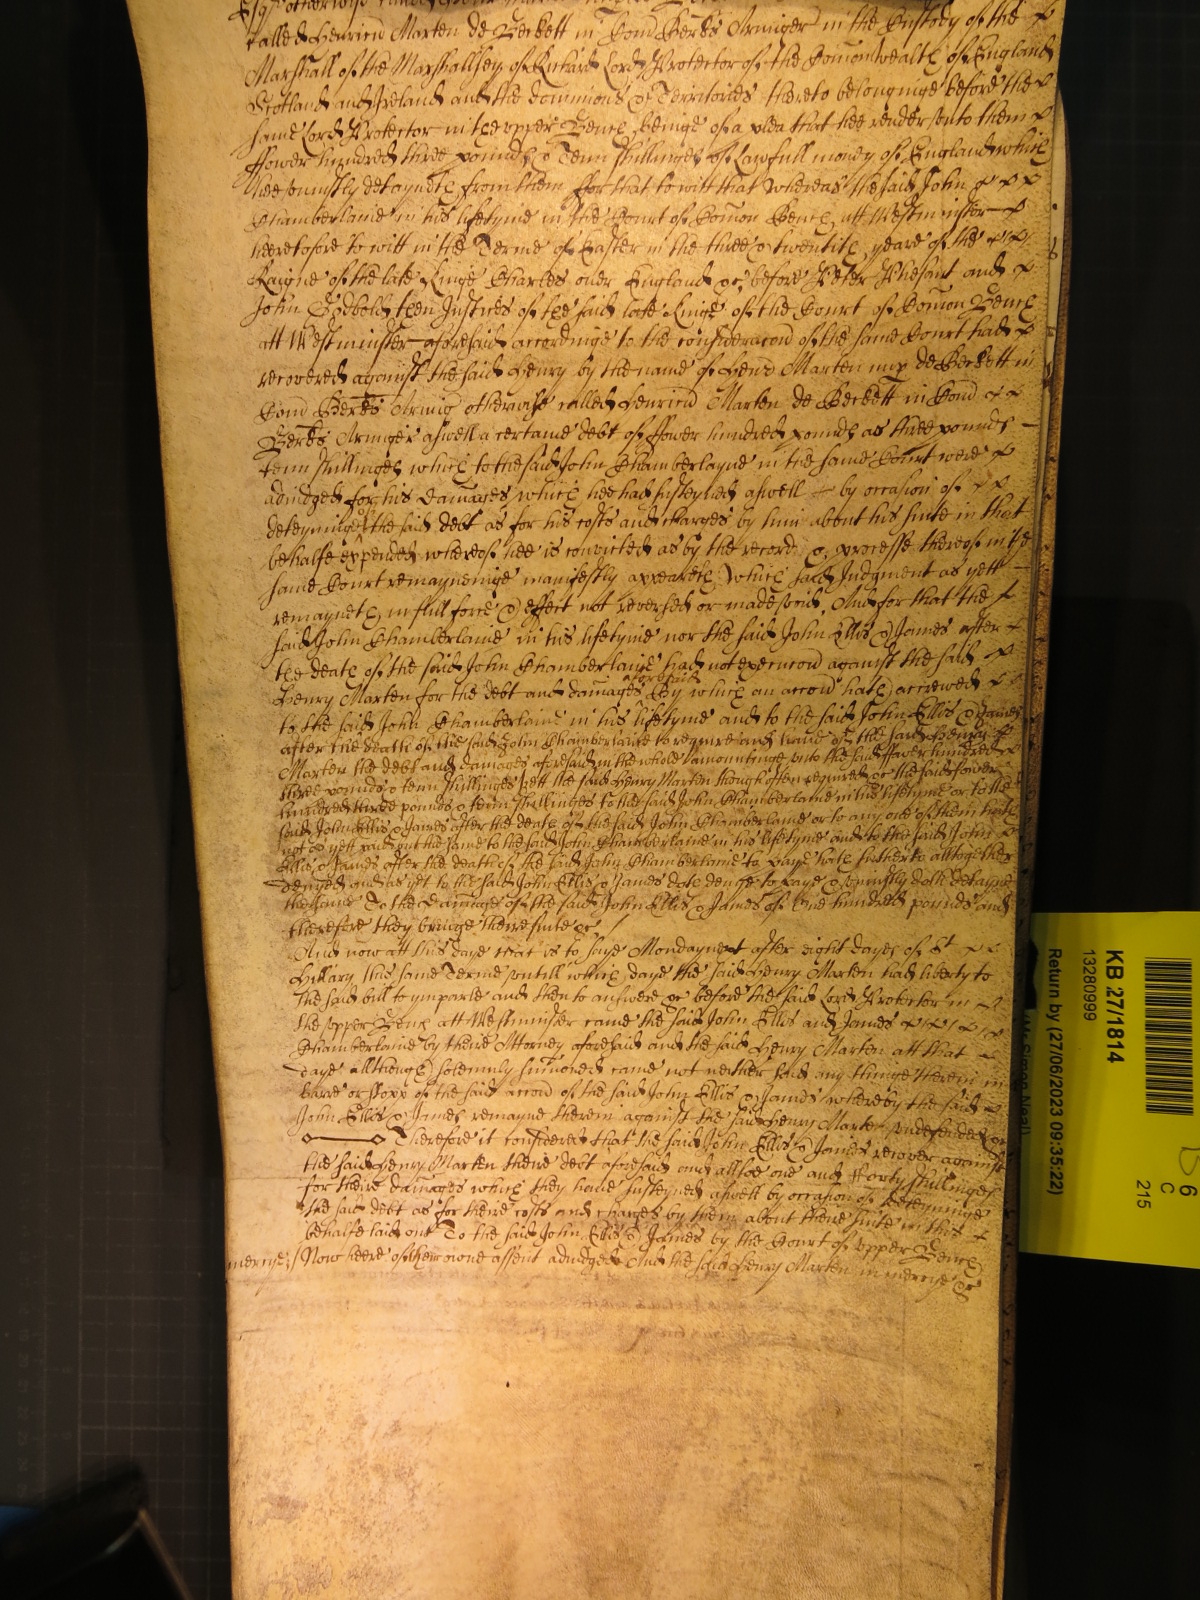 Esqr otherwise called
called Henricū Marten de Beckett in Comd Berks Armiger in the Custody of the
Marshall of the Marshallsey of Richard Lord Protector of the Comonwealth of England
Scotland and Ireland and the dominions & Territories thereto belonginge before the
same Lord Protector in the vpper Bench beinge of a plea that hee render vnto them
ffower hundred three pounds & Tenn shillinges of Lawfull money of England which
hee vniustly detayneth from them ffor that to witt that whereas the said John
Chamberlaine in his lifetyme in the Court of Comon Bench att Westminster
heretofore to witt in the Terme of Easter in the three & twentith yeare of the
Raigne of the late Kinge Charles over England &c before Peter Phesant and
John Godbold then Justices of the said late Kinge of the Court of Comon Bench
att Westminster aforesaid accordinge to the consideracon of the same Court had
recovered against the said Henry by the name of Henr Marten nup de Beckett in
Comd Berks Armig otherwise called Henricū Marten de Beckett in Comd
Berks Armiger aswell a certaine debt of ffower hundred pounds as three pounds
tenn shillinges which to the said John Chamberlayne in the same Court were
adiudged for his damages which hee had susteyned aswell by occasion of
deteyninge of the said debt as for his costs and charges by him about his suite in that
behalfe expended whereof hee is convicted as by the record & processe thereof in the
same Court remayneinge manifestly appeareth which said Judgment as yett
remayneth in full force & effect not reversed or made void, And for that the
said John Chamberlaine in his lifetyme nor the said John Ellis & James after
the death of the said John Chamberlaine had not execucon against the said
Henry Marten for the debt and damages aforesaid By which an accon hath accrewed
to the said John Chamberlaine in his lifetyme and to the said John Ellis & James
after the death of the said John Chamberlaine to require and have of the said Henry
Marten the debt and damages aforesaid in the whole amountinge vnto the said ffower hundred
three pounds & tenn shillinges yett the said Henry Marten though often required &c the said fower
hundred three pounds & tenn shillinges to the said John Chamberlaine in his lifetyme or to the
said John Ellis & James after the death of the said John Chamberlaine or to any one of them hath
not as yett paid but the same to the said John Chamberlaine in his lifetyme and to the said John
Ellis & James after the death of the said John Chamberlaine to paye hath hitherto alltogether
denyed and as yet to the said John Ellis & James doth denye to paye & vniustly doth detayne
the same To the damage of the said John Ellis & James of One hundred pounds and
therefore they bringe there suite &c /
And now att this daye that is to saye Monday next after eight dayes of St
Hillary this same Terme vntill which daye the said Henry Marten had liberty to
the said bill to ymparle and then to answere &c before the said Lord Protector in
the vpper Bench att Westminster came the said John Ellis and James
Chamberlaine by there Attorney aforesaid and the said Henry Marten att that
daye allthough solemnly sumoned came not neither said any thinge therein in
barre or stopp of the said accon of the said John Ellis & James whereby the said
John Ellis & James remayne therein against the said Henry Marten vndefended &c
Therefore it considered that the said John Ellis & James recover against
the said Henry Marten there debt aforesaid and allsoe one and fforty shillinges
for there damages which they have susteyned aswell by occasion of deteyninge
the said debt as for there costs and charges by them about there suite in this
behalfe laid out To the said John Ellis & James by the Court of vpper Bench
mercye / Now heere of their owne assent adiudged And the said Henry Marten in mercye &c
KB 27/1814
13280999
Return by (27/06/2023 09:35:22)
B 6
C
215